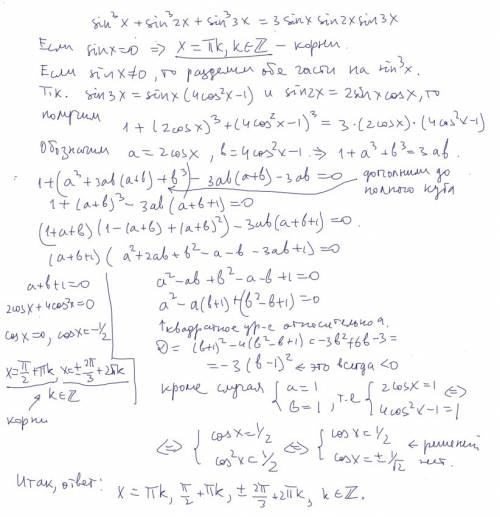 sin²x + sin³2x + sin³3x = 3 sinx sin2x sin3x
Если sinx=0 ⇒ x=πk, k∈ℤ – корни.
Если sinx≠0, то разделим обе части на sin³x.
Т.к. sin3x = sinx(4cos²x-1) и sin2x = 2sinx cosx, то
получим 1 + (2cosx)³ + (4cos²x-1)³ = 3·(2cosx)·(4cos²x-1)
Обозначим a=2cosx, b=4cos²x-1 ⇒ 1+a³+b³=3ab.
1+(a³+3ab(a+b)+b³) - 3ab(a+b) - 3ab = 0
дополним до
полного куба
1+(a+b)³ - 3ab(a+b+1)=0
(1+a+b)(1-(a+b)+(a+b)²) - 3ab(a+b+1)=0
(a+b+1)(a²+2ab+b²-a-b-3ab+1)=0
a+b+1=0
2cosx+4cos²x=0
cosx=0, cosx=-1/2
x=π/2+πk, x=±2π/3+2πk
k∈ℤ
корни
a²-ab+b²-a-b+1=0
a²-a(b+1)+(b²-b+1)=0
↑квадратное ур-е относительно a.
D=(b+1)²-4(b²-b+1)=-3b²+6b-3=
=-3(b-1)² ← это всегда <0
кроме случая { a=1 b=1, т.е { 2cosx=1 4cos²x-1=1 ⇔
⇔ { cosx=1/2 cos²x=1/2 ⇔ { cosx=1/2 cosx=±1/√2 ← решений нет.
Итак, ответ: x=πk, π/2+πk, ±2π/3+2πk, k∈ℤ.